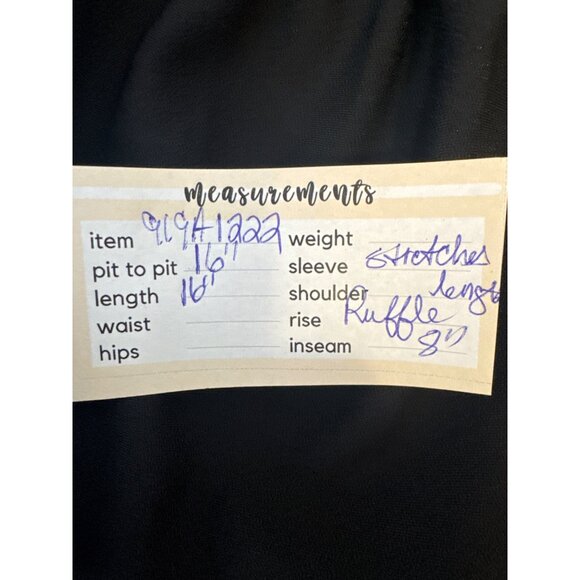 measurements
item 919A1222
pit to pit 16"
length 16"
waist
hips
weight
sleeve stretches
shoulder length
rise Ruffle
inseam 8"